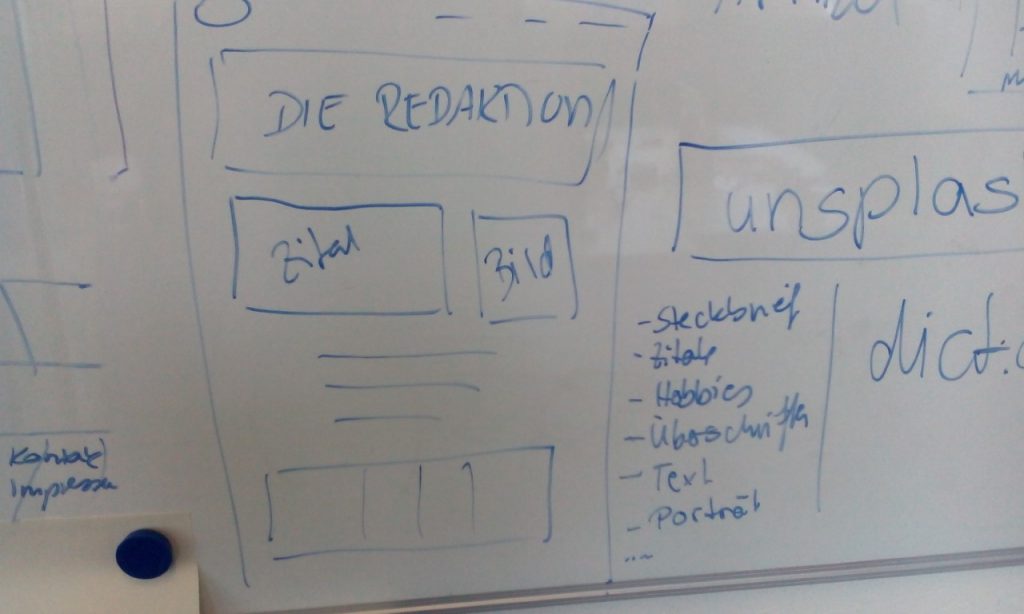 DIE REDAKTION
Zitat
Bild
unsplas
- Steckbrief
- Zitate
- Hobbies
- Überschriften
- Text
- Porträt
...
dict.c
Kontakt
Impressu